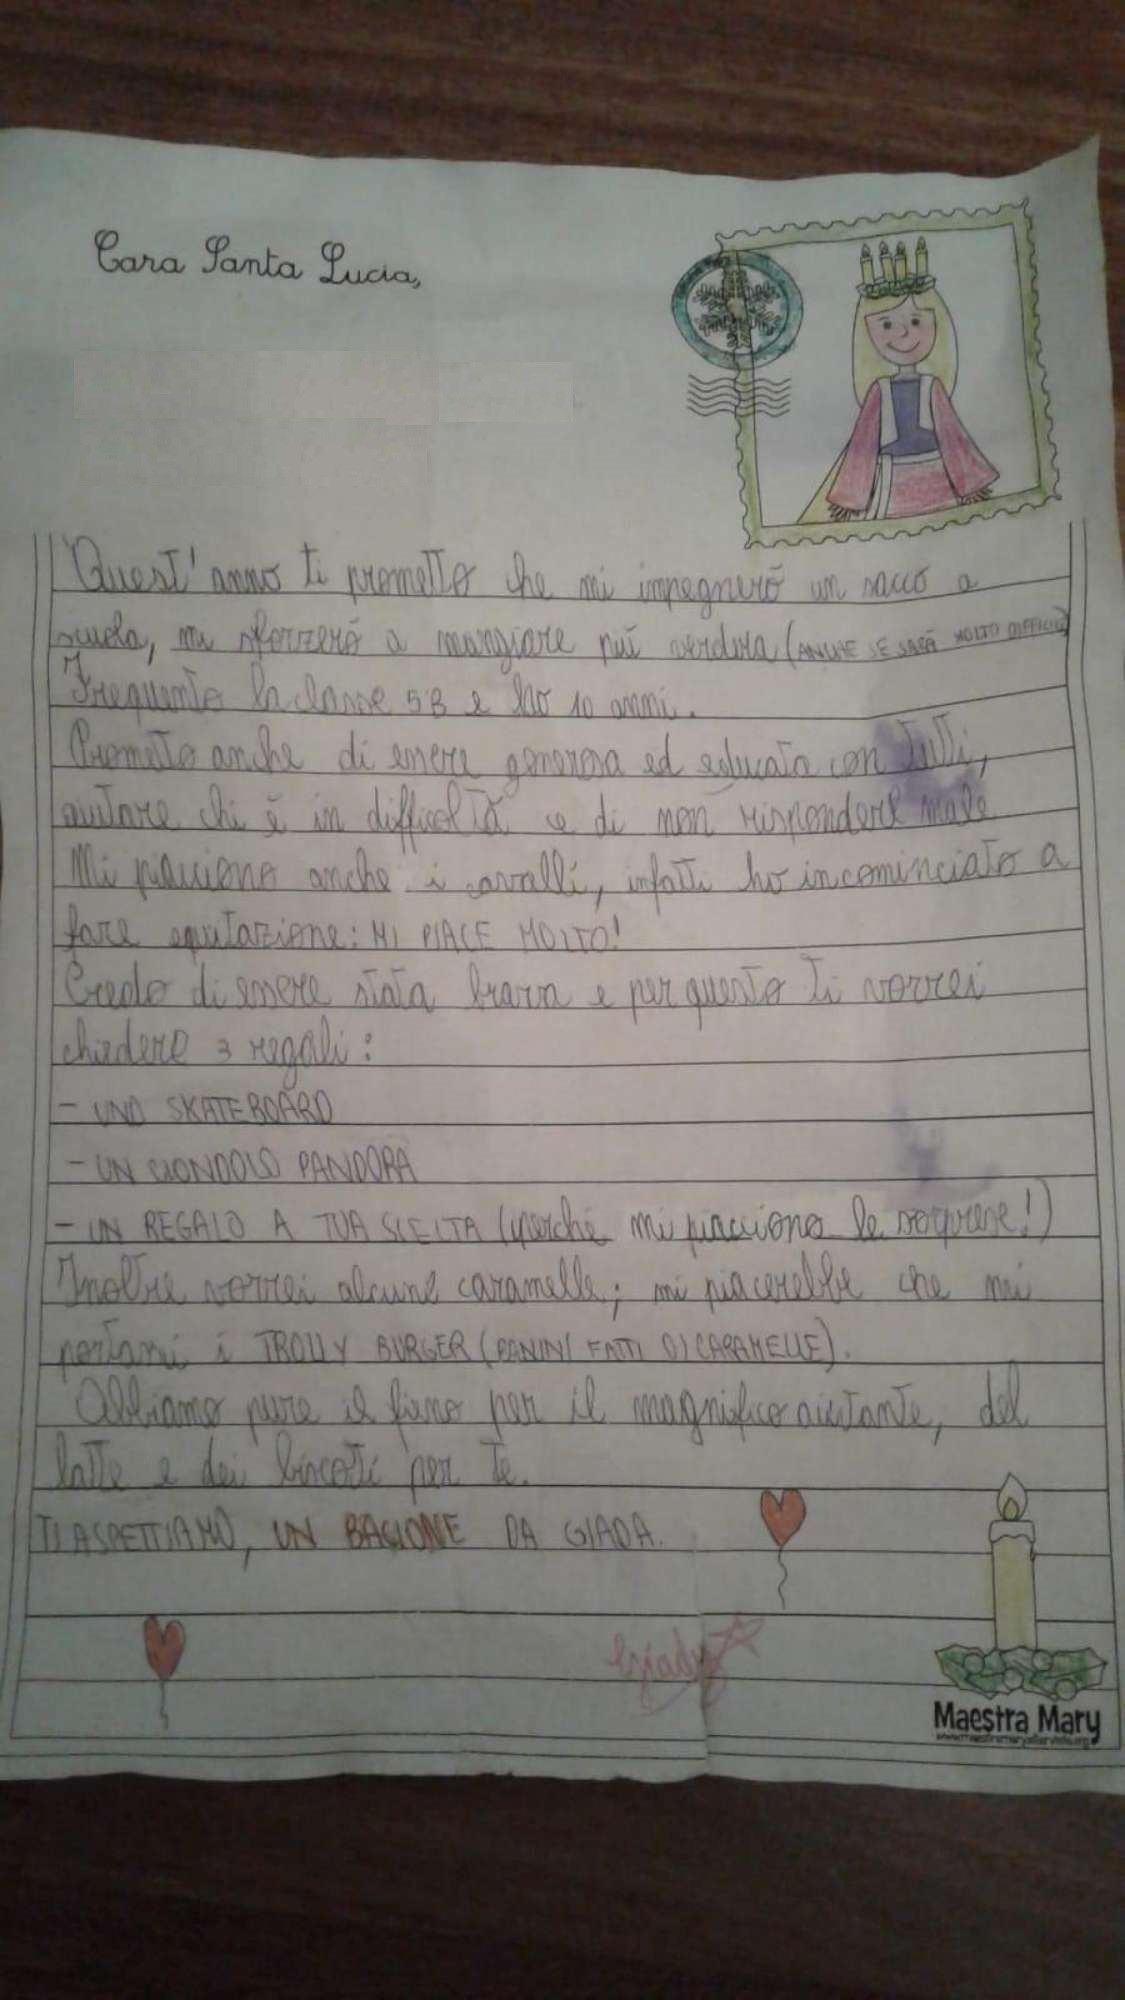 Cara Santa Lucia,
Quest'anno ti prometto che mi impegnerò un sacco a
scuola, mi sforzerò a mangiare più verdura (ANCHE SE SARÀ MOLTO DIFFICILE)
Frequento la classe 5B e ho 10 anni.
Prometto anche di essere generosa ed educata con tutti,
aiutare chi è in difficoltà e di non rispondere male
Mi piacciono anche i cavalli, infatti ho incominciato a
fare equitazione: MI PIACE MOLTO!
Credo di essere stata brava e per questo ti vorrei
chiedere 3 regali:
- UNO SKATEBOARD
- UN CIONDOLO PANDORA
- UN REGALO A TUA SCELTA (perché mi piacciono le sorprese!)
Inoltre vorrei alcune caramelle; mi piacerebbe che mi
portassi i TROLLY BURGER (PANINI FATTI DI CARAMELLE).
Abbiamo pure il fieno per il magnifico aiutante, del
latte e dei biscotti per te.
TI ASPETTIAMO, UN BACIONE DA GIADA.
Giady
Maestra Mary